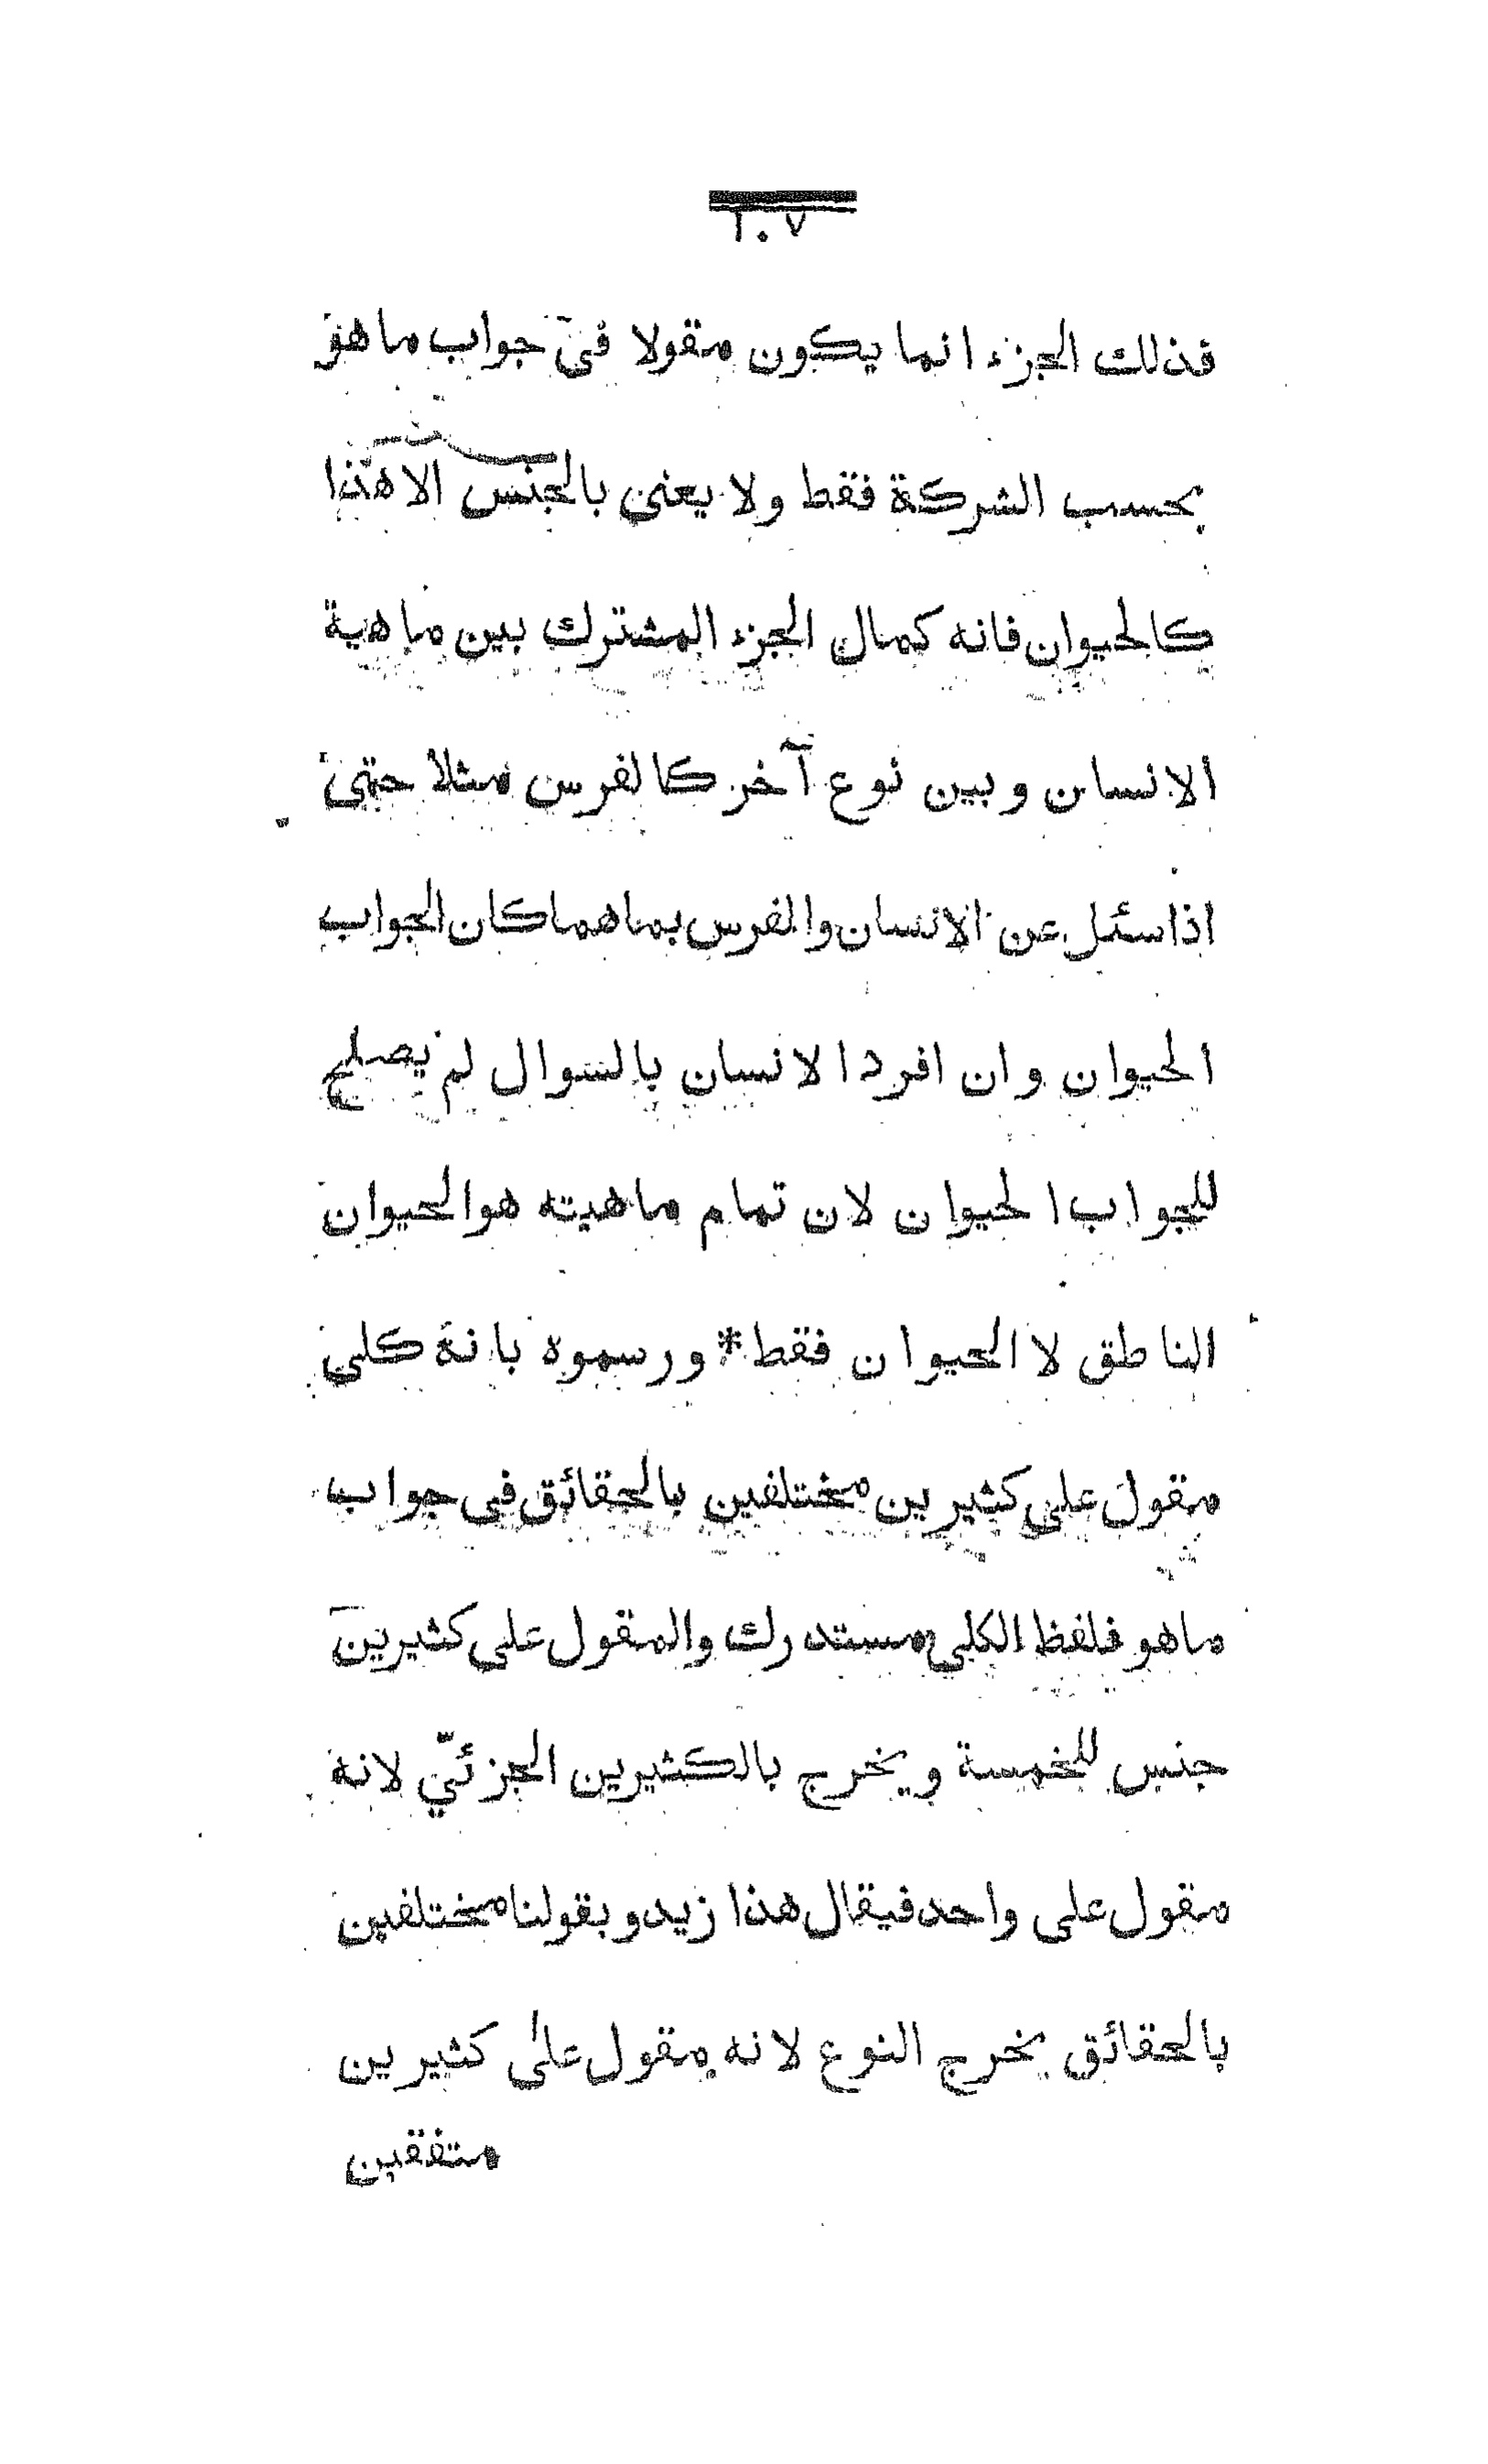 ١٠٧
فذلك الجزء انما يكون مقولا في جواب ما هو
بحسب الشركة فقط ولا يعنى بالجنس الا هذا
كالحيوان فانه كمال الجزء المشترك بين ما هية
الانسان وبين نوع آخر كالفرس مثلا حتى
اذا سئل عن الانسان والفرس بما هما كان الجواب
الحيوان وان افرد الانسان بالسوال لم يصلح
للجواب الحيوان لان تمام ما هيته هو الحيوان
الناطق لا الحيوان فقط * ورسموه بانه كلي
مقول على كثيرين مختلفين بالحقائق في جواب
ما هو فلفظ الكلي مستدرك والمقول على كثيرين
جنس للخمسة ويخرج بالكثيرين الجزئيّ لانه
مقول على واحد فيقال هذا زيد وبقولنا مختلفين
بالحقائق يخرج النوع لانه مقول على كثيرين
متفقين